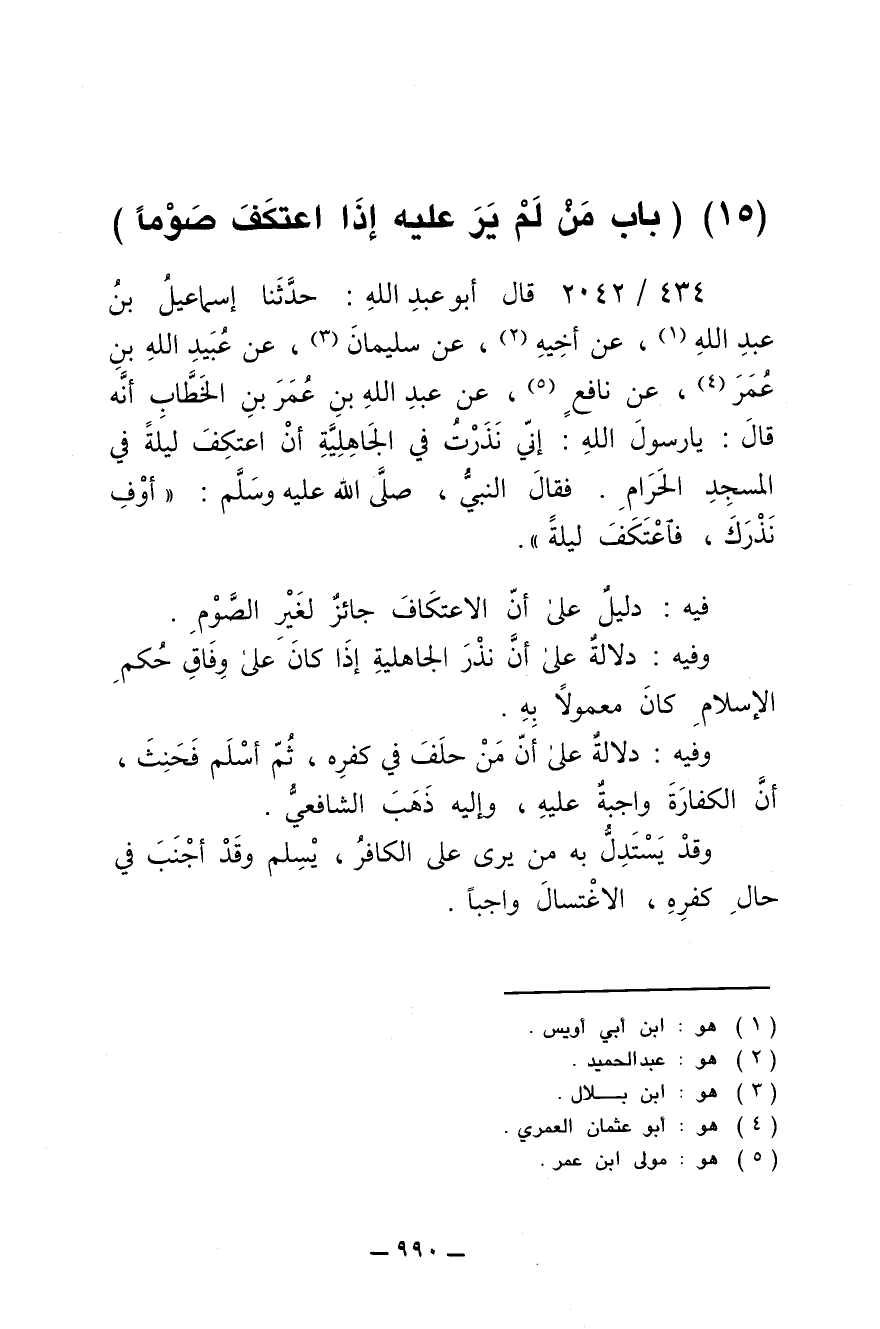 (١٥) ( باب مَنْ لَمْ يَرَ عليه إذَا اعتكَفَ صَوْماً )
٤٣٤ / ٢٠٤٢ قال أبو عبدِ اللهِ : حدَّثَنا إسماعيلُ بنُ
عبدِ اللهِ (١) ، عن أخِيهِ (٢) ، عن سليمانَ (٣) ، عن عُبَيدِ اللهِ بنِ
عُمَرَ (٤) ، عن نافعٍ (٥) ، عن عبدِ اللهِ بنِ عُمَرَ بنِ الخَطَّابِ أنَّه
قالَ : يارسولَ اللهِ : إنّي نَذَرْتُ في الجَاهِلِيَّةِ أنْ اعتكِفَ ليلةً في
المسجِدِ الحَرَامِ . فقالَ النبيُّ ، صلَّى الله عليه وسَلَّم : « أوْفِ
نَذْرَكَ ، فآعْتَكَفَ ليلةً ».
فيه : دليلٌ علىٰ أنّ الاعتكَافَ جائزٌ لغَيْرِ الصَّوْمِ .
وفيه : دلالةٌ علىٰ أنَّ نذْرَ الجاهليةِ إذَا كانَ علىٰ وِفَاقِ حُكمِ
الإسلامِ كانَ معمولاً بِهِ .
وفيه : دلالةٌ علىٰ أنّ مَنْ حلَفَ في كفرِه ، ثُمّ أسْلَم فَحَنِثَ ،
أنَّ الكفارَةَ واجبةٌ عليهِ ، وإليه ذَهَبَ الشافعيُّ .
وقدْ يَسْتَدِلُّ به من يرى على الكافرُ ، يْسِلم وقَدْ أجْنَبَ في
حالِ كفرِهِ ، الاغْتسالَ واجباً .
(١) هو : ابن أبي أويس .
(٢) هو : عبدالحميد .
(٣) هو : ابن بــلال .
(٤) هو : أبو عثمان العمري .
(٥) هو : مولى ابن عمر .
— ٩٩٠ —